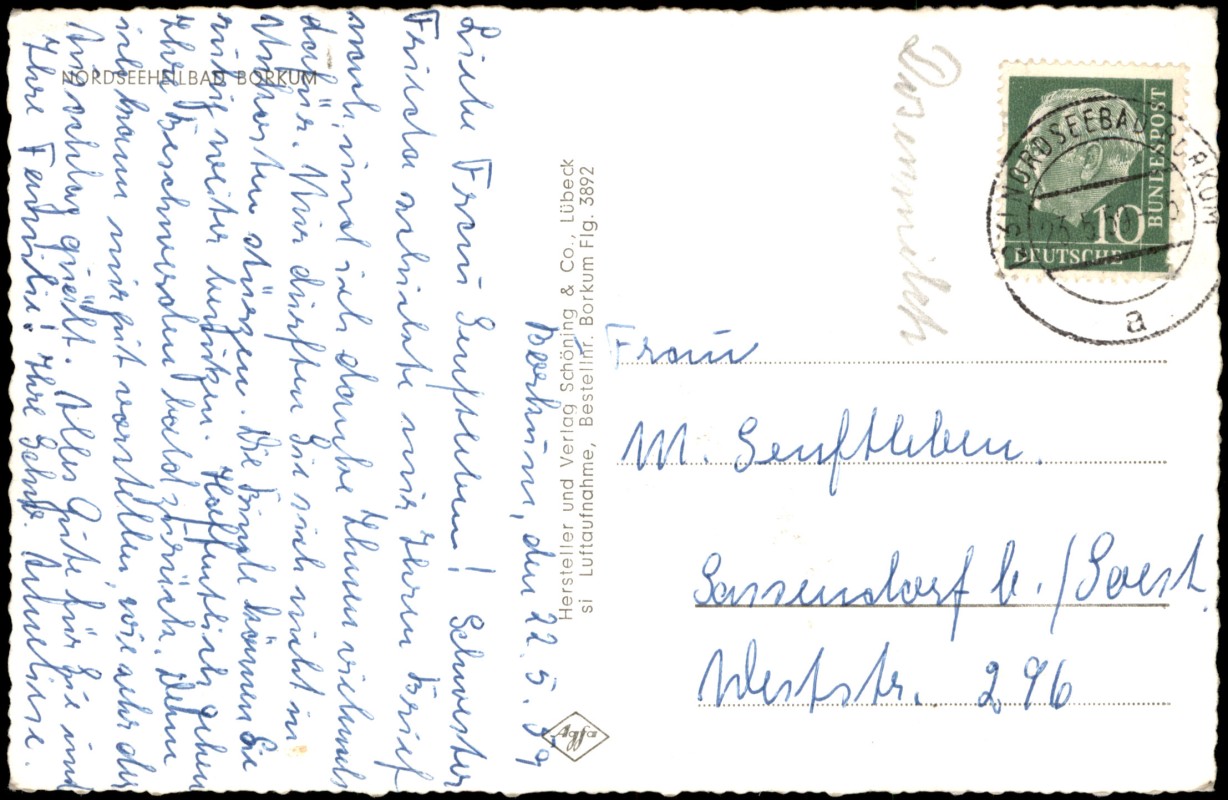 NORDSEEHEILBAD BORKUM
Borkum, den 22. 5. 59
Liebe Frau Senftleben! Schwester
Frieda schickte mir Ihren Brief
nach, und ich danke Ihnen vielmals
dafür. Nur dürfen Sie sich nicht in
Unkosten stürzen. Die Pinsel können Sie
ruhig weiter benützen. Hoffentlich gehen
Ihre Beschwerden bald zurück. Denn
ich kann mir gut vorstellen, wie sehr der
Ausschlag quält. Alles Gute für Sie und
Ihre Familie! Ihre Schw. Anneliese.
Hersteller und Verlag Schöning & Co., Lübeck
si Luftaufnahme, Bestellnr. Borkum Flg. 3892
Agfa
DEUTSCHE
BUNDESPOST
10
NORDSEEBAD BORKUM
a
Frau
M. Senftleben.
Sassendorf b./Soest
Weststr. 296